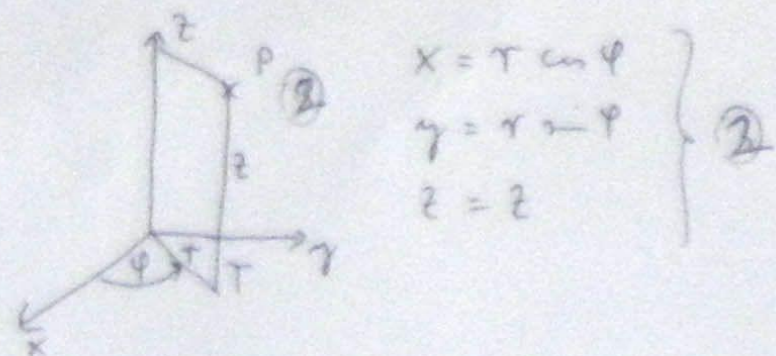 z
P ②
z
y
φ r T
x
x = r cos φ
y = r sin φ
z = z
②